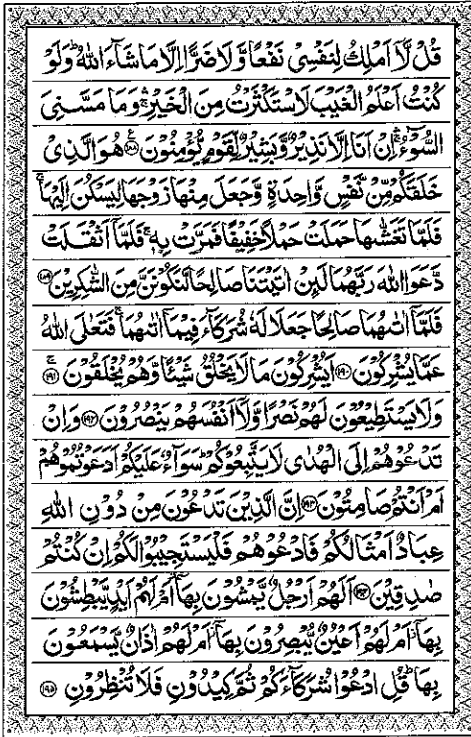 قُلْ لَّاۤ اَمْلِكُ لِنَفْسِیْ نَفْعًا وَّلَا ضَرًّا اِلَّا مَا شَآءَ اللّٰهُ ؕ وَلَوْ
كُنْتُ اَعْلَمُ الْغَیْبَ لَاسْتَكْثَرْتُ مِنَ الْخَیْرِ ۛۚ وَمَا مَسَّنِیَ
السُّوْٓءُ ۛۚ اِنْ اَنَا اِلَّا نَذِیْرٌ وَّبَشِیْرٌ لِّقَوْمٍ یُّؤْمِنُوْنَ ۟﴿۱۸۸﴾ هُوَ الَّذِیْ
خَلَقَكُمْ مِّنْ نَّفْسٍ وَّاحِدَةٍ وَّجَعَلَ مِنْهَا زَوْجَهَا لِیَسْكُنَ اِلَیْهَا ۚ
فَلَمَّا تَغَشّٰىهَا حَمَلَتْ حَمْلًا خَفِیْفًا فَمَرَّتْ بِهٖ ۚ فَلَمَّاۤ اَثْقَلَتْ
دَّعَوَا اللّٰهَ رَبَّهُمَا لَىِٕنْ اٰتَیْتَنَا صَالِحًا لَّنَكُوْنَنَّ مِنَ الشّٰكِرِیْنَ ﴿۱۸۹﴾
فَلَمَّاۤ اٰتٰىهُمَا صَالِحًا جَعَلَا لَهٗ شُرَكَآءَ فِیْمَاۤ اٰتٰىهُمَا ۚ فَتَعٰلَی اللّٰهُ
عَمَّا یُشْرِكُوْنَ ﴿۱۹۰﴾ اَیُشْرِكُوْنَ مَا لَا یَخْلُقُ شَیْـًٔا وَّهُمْ یُخْلَقُوْنَ ﴿۱۹۱﴾ۚ
وَلَا یَسْتَطِیْعُوْنَ لَهُمْ نَصْرًا وَّلَاۤ اَنْفُسَهُمْ یَنْصُرُوْنَ ﴿۱۹۲﴾ وَاِنْ
تَدْعُوْهُمْ اِلَی الْهُدٰی لَا یَتَّبِعُوْكُمْ ؕ سَوَآءٌ عَلَیْكُمْ اَدَعَوْتُمُوْهُمْ
اَمْ اَنْتُمْ صَامِتُوْنَ ﴿۱۹۳﴾ اِنَّ الَّذِیْنَ تَدْعُوْنَ مِنْ دُوْنِ اللّٰهِ
عِبَادٌ اَمْثَالُكُمْ فَادْعُوْهُمْ فَلْیَسْتَجِیْبُوْا لَكُمْ اِنْ كُنْتُمْ
صٰدِقِیْنَ ﴿۱۹۴﴾ اَلَهُمْ اَرْجُلٌ یَّمْشُوْنَ بِهَاۤ ؗ اَمْ لَهُمْ اَیْدٍ یَّبْطِشُوْنَ
بِهَاۤ ؗ اَمْ لَهُمْ اَعْیُنٌ یُّبْصِرُوْنَ بِهَاۤ ؗ اَمْ لَهُمْ اٰذَانٌ یَّسْمَعُوْنَ
بِهَا ؕ قُلِ ادْعُوْا شُرَكَآءَكُمْ ثُمَّ كِیْدُوْنِ فَلَا تُنْظِرُوْنِ ﴿۱۹۵﴾